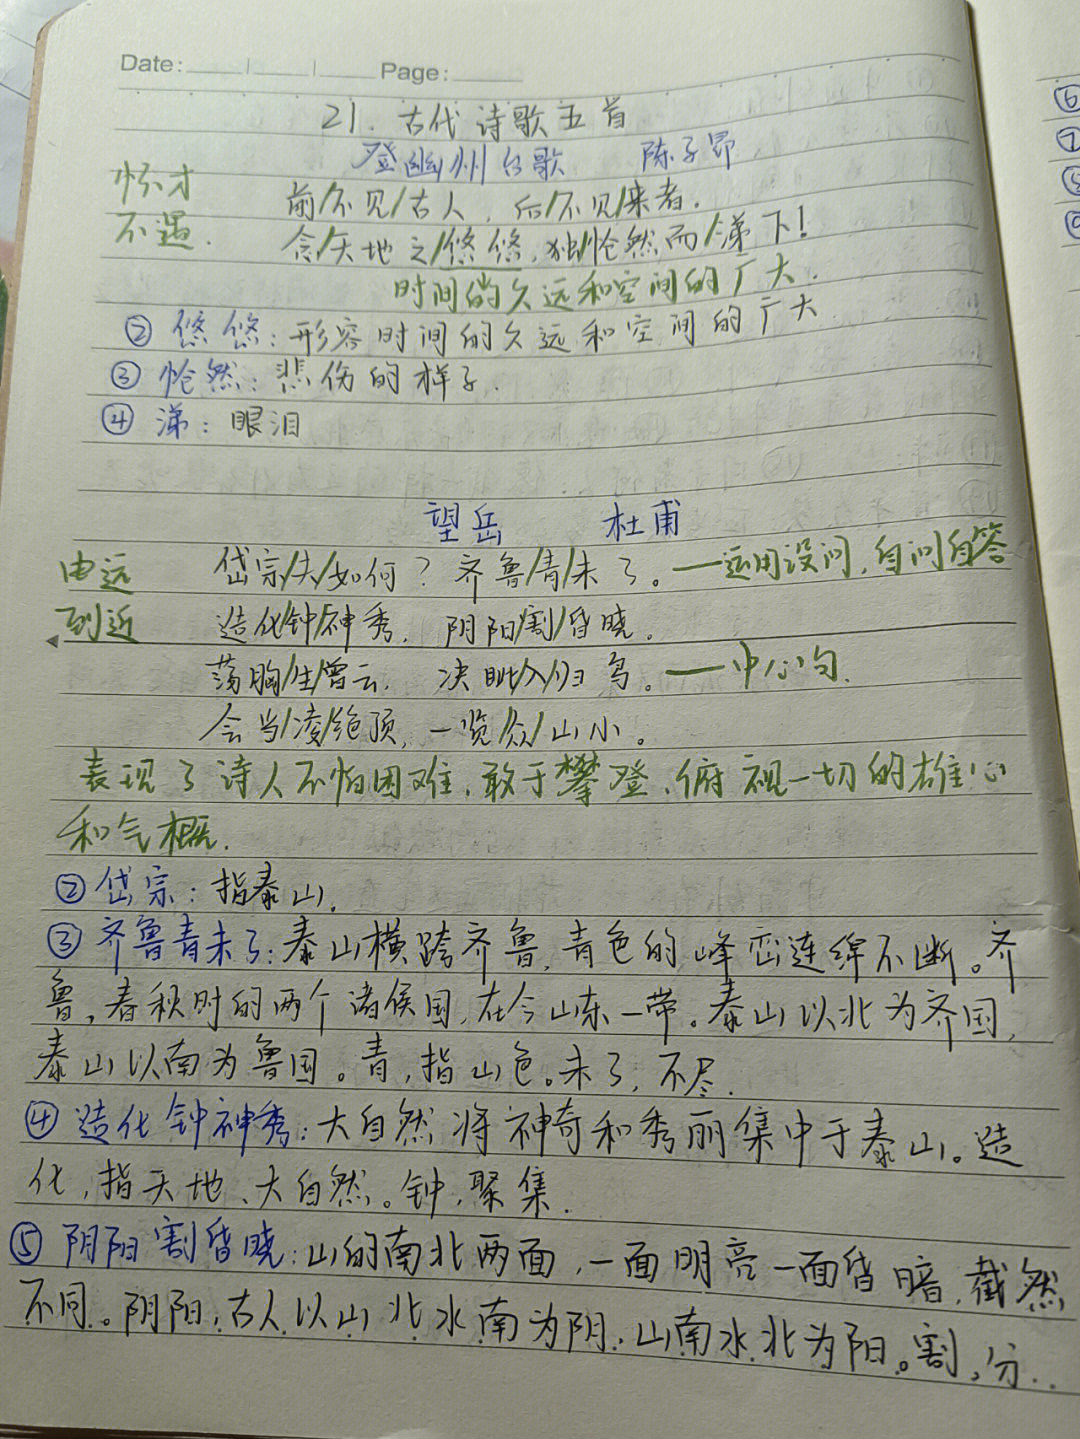 Date: Page:
21. 古代诗歌五首
登幽州台歌 陈子昂
怀才不遇.
前/不见/古人, 后/不见/来者.
念/天地之/悠悠, 独/怆然而/涕下!
时间的久远和空间的广大.
② 悠悠: 形容时间的久远和空间的广大
③ 怆然: 悲伤的样子.
④ 涕: 眼泪
望岳 杜甫
由远到近
岱宗/夫/如何? 齐鲁/青/未了。——运用设问, 自问自答
造化/钟/神秀, 阴阳/割/昏晓。
荡胸/生/曾云, 决眦/入/归鸟。——中心句.
会当/凌/绝顶, 一览/众/山小。
表现了诗人不怕困难, 敢于攀登, 俯视一切的雄心
和气概.
② 岱宗: 指泰山.
③ 齐鲁青未了: 泰山横跨齐鲁, 青色的峰峦连绵不断。齐
鲁, 春秋时的两个诸侯国, 在今山东一带。泰山以北为齐国,
泰山以南为鲁国。青, 指山色。未了, 不尽.
④ 造化钟神秀: 大自然将神奇和秀丽集中于泰山。造
化, 指天地、大自然。钟, 聚集.
⑤ 阴阳割昏晓: 山的南北两面, 一面明亮一面昏暗, 截然
不同。阴阳, 古人以山北水南为阴, 山南水北为阳。割, 分..
⑥
⑦